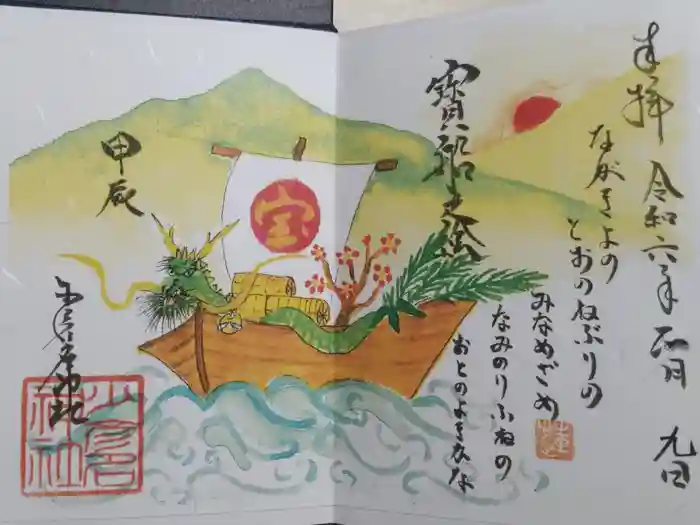 奉拝 令和六年 正月 九日
ながきよの
とおのねぶりの
みなめざめ
なみのりふねの
おとのよきかな
寳船之祭
宝
甲辰
少彦名
神社